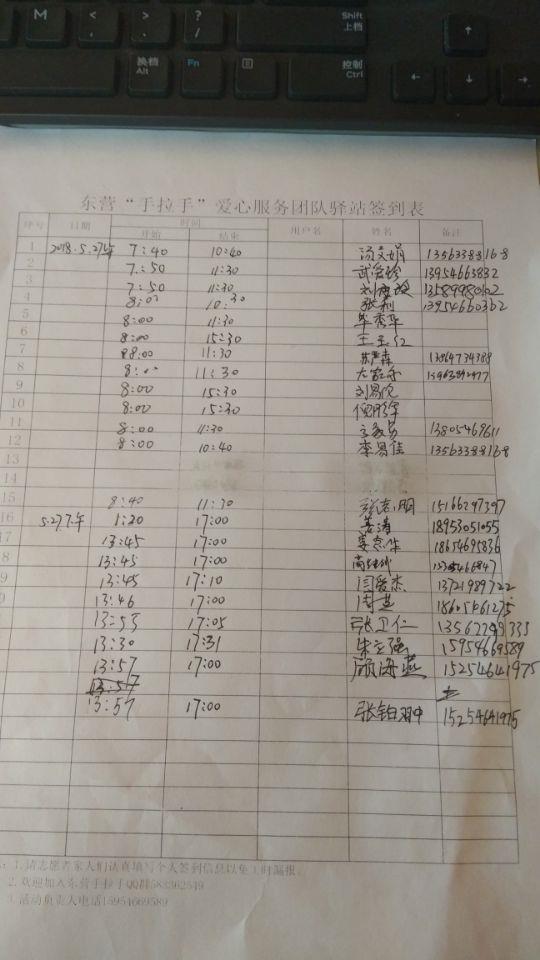 M < > ? Shift
, . / 上档 ↑
换档 Fn 控制
Alt Ctrl ← ↓ →
东营“手拉手”爱心服务团队驿站签到表
序号 日期 时间 用户名 姓名 备注
开始 结束
1 2018.5.27午 7:40 10:40 汤文娟 13563388168
2 7:50 11:30 13954663832
3 7:50 11:30 13589980102
4 8:00 10:30 张利 13954660362
5 8:00 11:30 毕秀华
6 8:00 15:30 王玉红
7 08:00 11:30 13864734388
8 8:00 11:30
9 8:00 15:30
10 8:00 15:30
11 8:00 11:30 13805469611
12 8:00 10:40 李易佳 13563388168
13
14
15 8:40 11:30 15166297397
16 5.27下午 1:20 17:00 姜涛 18953051055
17 13:45 17:00 18654695836
8 13:45 17:00
9 13:45 17:10 闫爱杰 13721989722
13:46 17:00 周燕 18605461275
13:53 17:05 张卫仁 13562299335
13:30 17:31 朱立强 15954669589
13:57 17:00 顾海燕 15254641975
13:57
13:57 17:00 张铂羽中 15254641975
1.请志愿者家人们认真填写个人签到信息以免工时漏报。
2.欢迎加入东营手拉手QQ群583362549
3.活动负责人电话15954669589